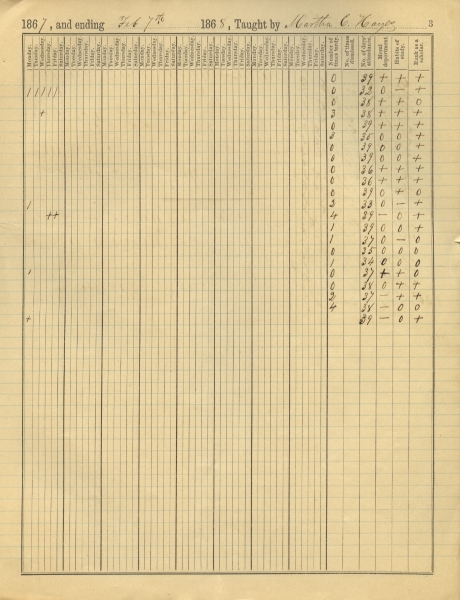 1867, and ending Feb 7th 1868, Taught by Martha C. Hayes 3
Monday. Tuesday. Wednesday. Thursday. Friday. Saturday. Number of times tardy. No. of times dismissed. No. of days attendance. Moral deportment. Habits of study. Rank as a scholar.
0 39 + + +
| | | | | | 0 32 0 — +
0 38 + + 0
+ 3 38 + + +
0 39 + + +
3 35 0 0 +
0 39 0 0 +
0 39 0 0 +
0 36 + + +
0 36 + + +
0 39 0 + 0
| 2 33 0 — +
+ + 4 39 — 0 +
1 39 0 0 +
1 37 0 — 0
0 35 0 0 0
1 34 0 0 0
| 0 37 + + 0
0 38 0 + +
2 37 — + +
4 38 — 0 0
+ 39 — 0 +